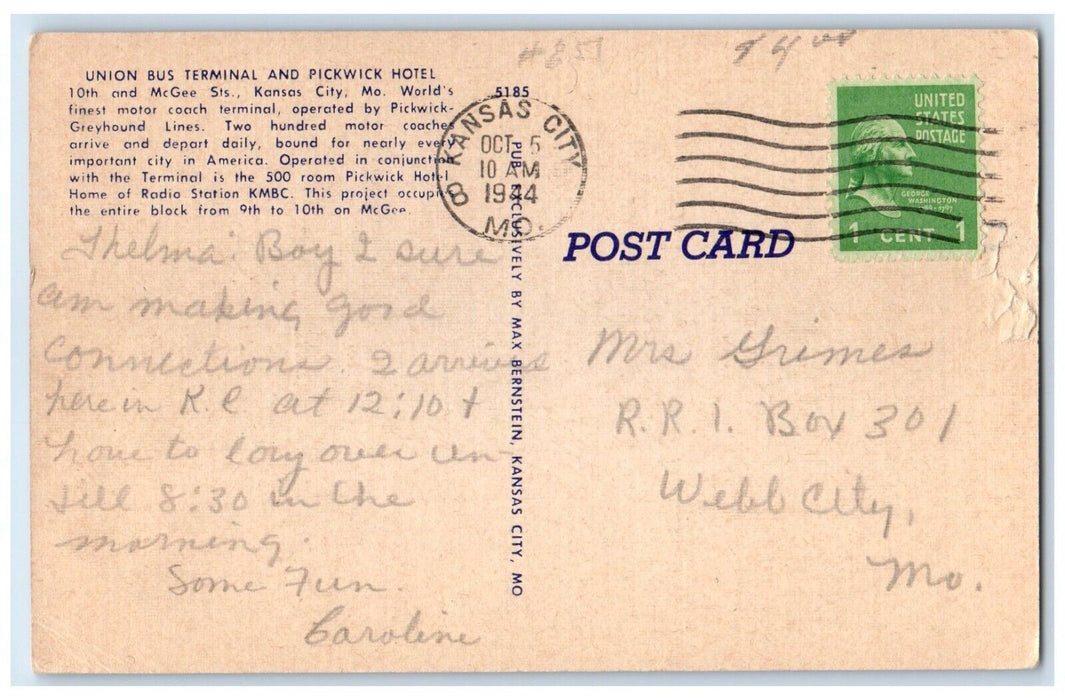 UNION BUS TERMINAL AND PICKWICK HOTEL
10th and McGee Sts., Kansas City, Mo. World's
finest motor coach terminal, operated by Pickwick-
Greyhound Lines. Two hundred motor coaches
arrive and depart daily, bound for nearly every
important city in America. Operated in conjunction
with the Terminal is the 500 room Pickwick Hotel
Home of Radio Station KMBC. This project occupies
the entire block from 9th to 10th on McGee.
5185
KANSAS CITY
OCT 5
10 AM
1944
MO.
8
PUB. EXCLUSIVELY BY MAX BERNSTEIN, KANSAS CITY, MO
UNITED
STATES
POSTAGE
GEORGE
WASHINGTON
1 CENT 1
POST CARD
Thelma: Boy I sure
am making good
connections. I arrived
here in K.C at 12:10 +
have to lay over un-
till 8:30 in the
morning.
Some Fun.
Caroline
Mrs Grimes
R.R.1. Box 301
Webb City,
Mo.